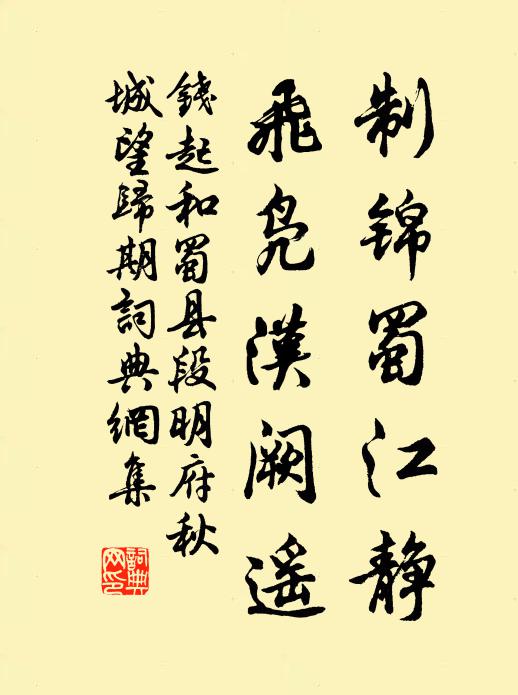 制锦蜀江静
飛凫漢阙遥
錢起和蜀县段明府秋
城望歸期詞典網集
詞典
网印